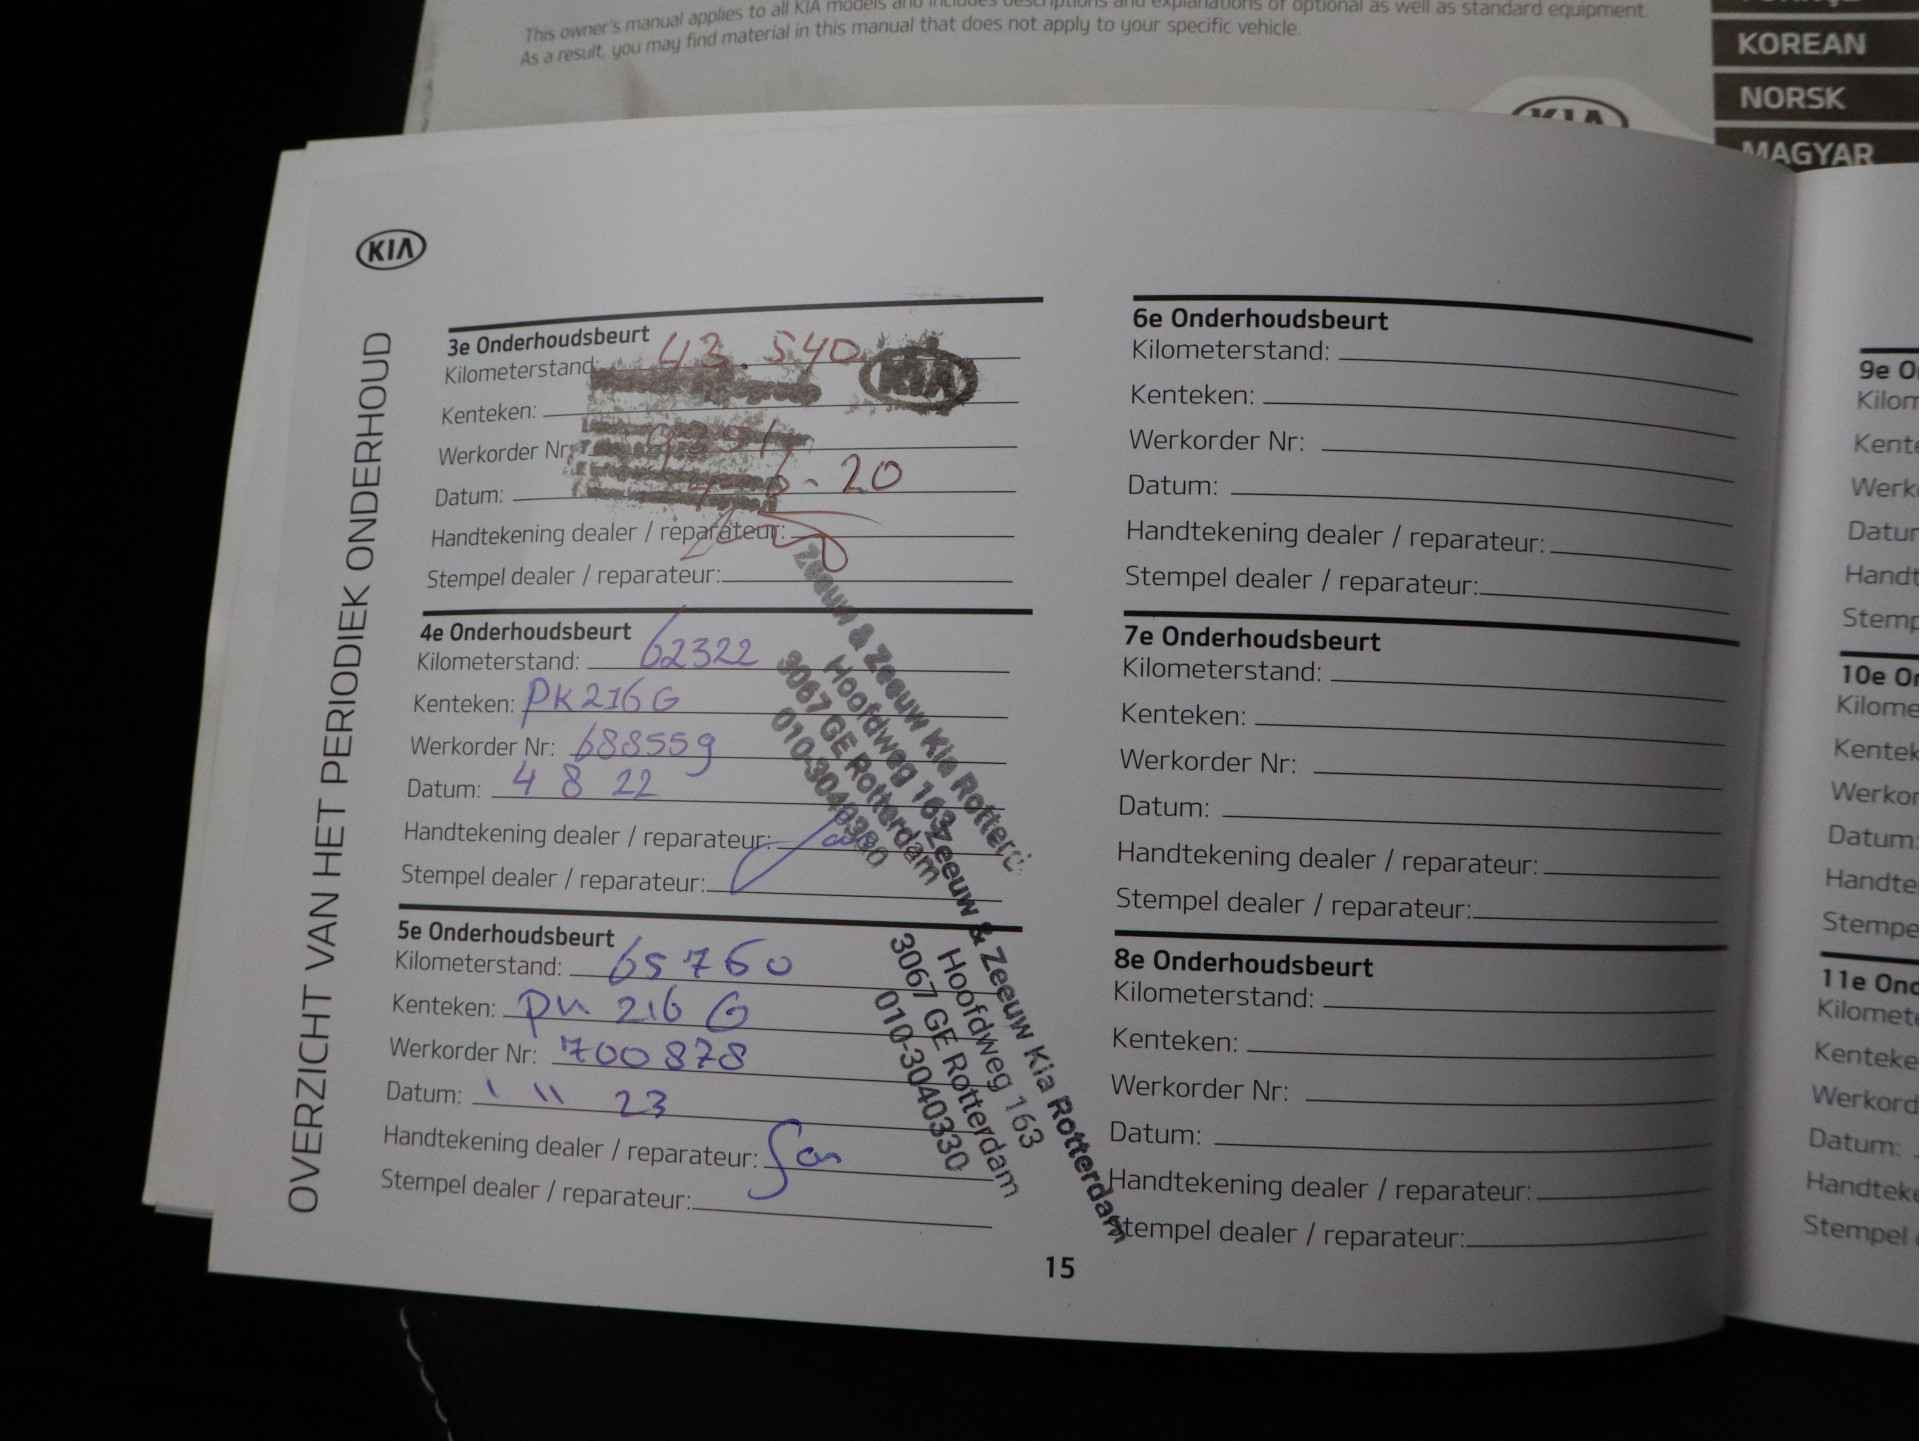 This owner's manual applies to all KIA models and includes descriptions and explanations of optional as well as standard equipment.
As a result, you may find material in this manual that does not apply to your specific vehicle.
KOREAN
NORSK
MAGYAR
KIA
KIA
OVERZICHT VAN HET PERIODIEK ONDERHOUD
3e Onderhoudsbeurt
Kilometerstand: 43.540
KIA
Kenteken:
Werkorder Nr:
Datum: 6-20
Handtekening dealer / reparateur:
Stempel dealer / reparateur:
4e Onderhoudsbeurt
Kilometerstand: 62322
Kenteken: PK216G
Werkorder Nr: 688559
Datum: 4 8 22
Handtekening dealer / reparateur:
Stempel dealer / reparateur:
Zeeuw & Zeeuw Kia Rotterd
Hoofdweg 163
3067 GE Rotterdam
010-3040330
5e Onderhoudsbeurt
Kilometerstand: 65760
Kenteken: PK 216 G
Werkorder Nr: 700878
Datum: 1 11 23
Handtekening dealer / reparateur:
Stempel dealer / reparateur:
Zeeuw & Zeeuw Kia Rotterdam
Hoofdweg 163
3067 GE Rotterdam
010-3040330
6e Onderhoudsbeurt
Kilometerstand:
Kenteken:
Werkorder Nr:
Datum:
Handtekening dealer / reparateur:
Stempel dealer / reparateur:
7e Onderhoudsbeurt
Kilometerstand:
Kenteken:
Werkorder Nr:
Datum:
Handtekening dealer / reparateur:
Stempel dealer / reparateur:
8e Onderhoudsbeurt
Kilometerstand:
Kenteken:
Werkorder Nr:
Datum:
Handtekening dealer / reparateur:
Stempel dealer / reparateur:
15
9e O
Kilom
Kente
Werk
Datum
Handt
Stemp
10e On
Kilome
Kentek
Werkor
Datum:
Handte
Stempe
11e Ond
Kilomet
Kenteke
Werkord
Datum:
Handteke
Stempel